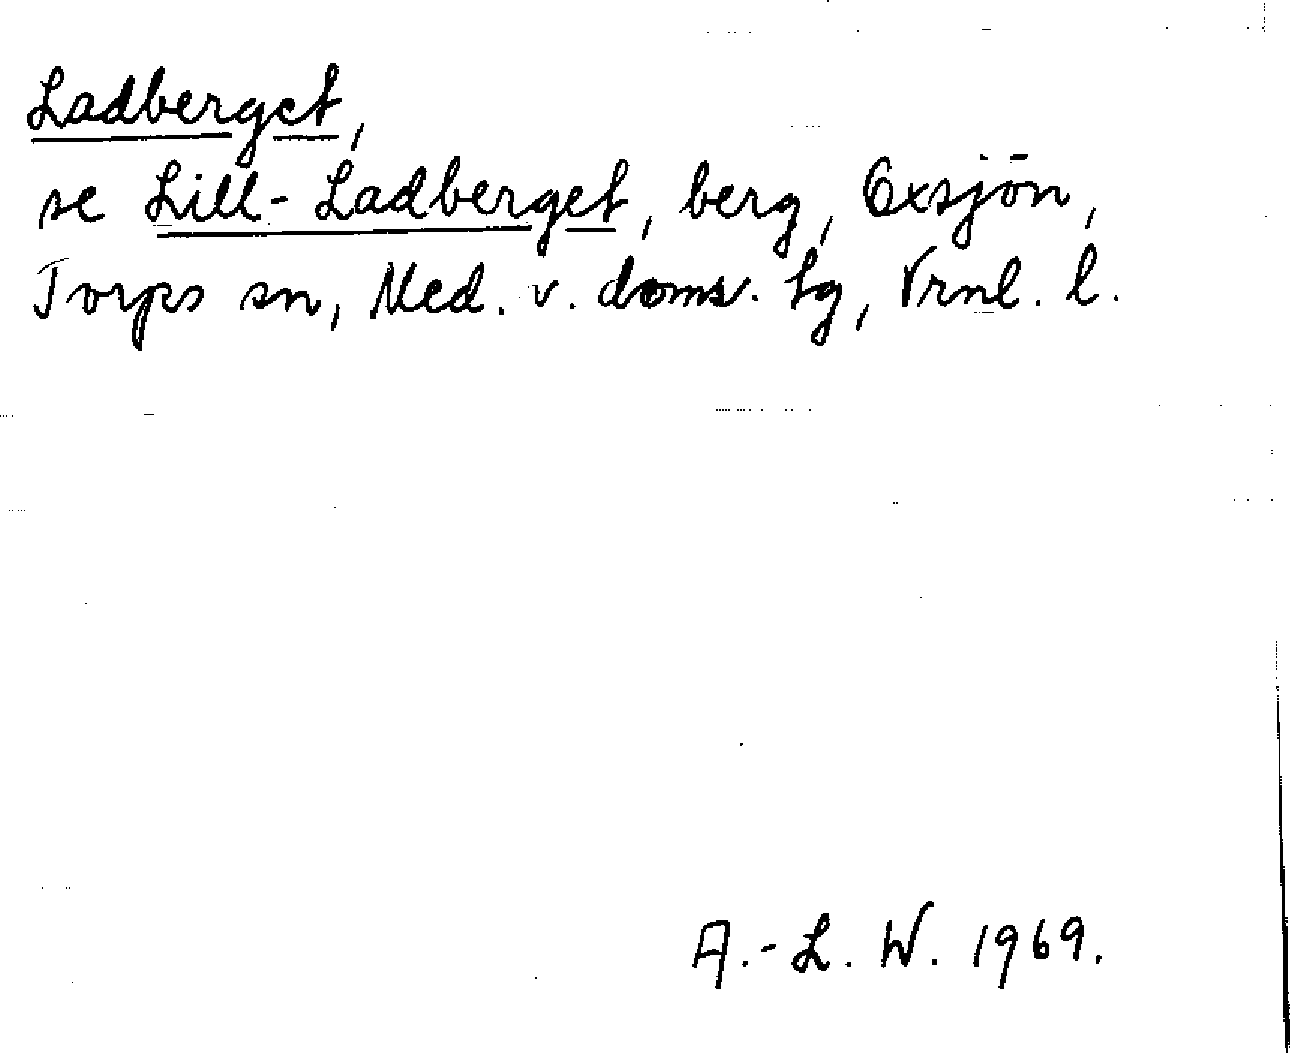 Ladberget,
se Lill-Ladberget, berg, Oxsjön,
Torps sn, Med. v. doms. tg, Vrnl. l.
A.-L. W. 1969.